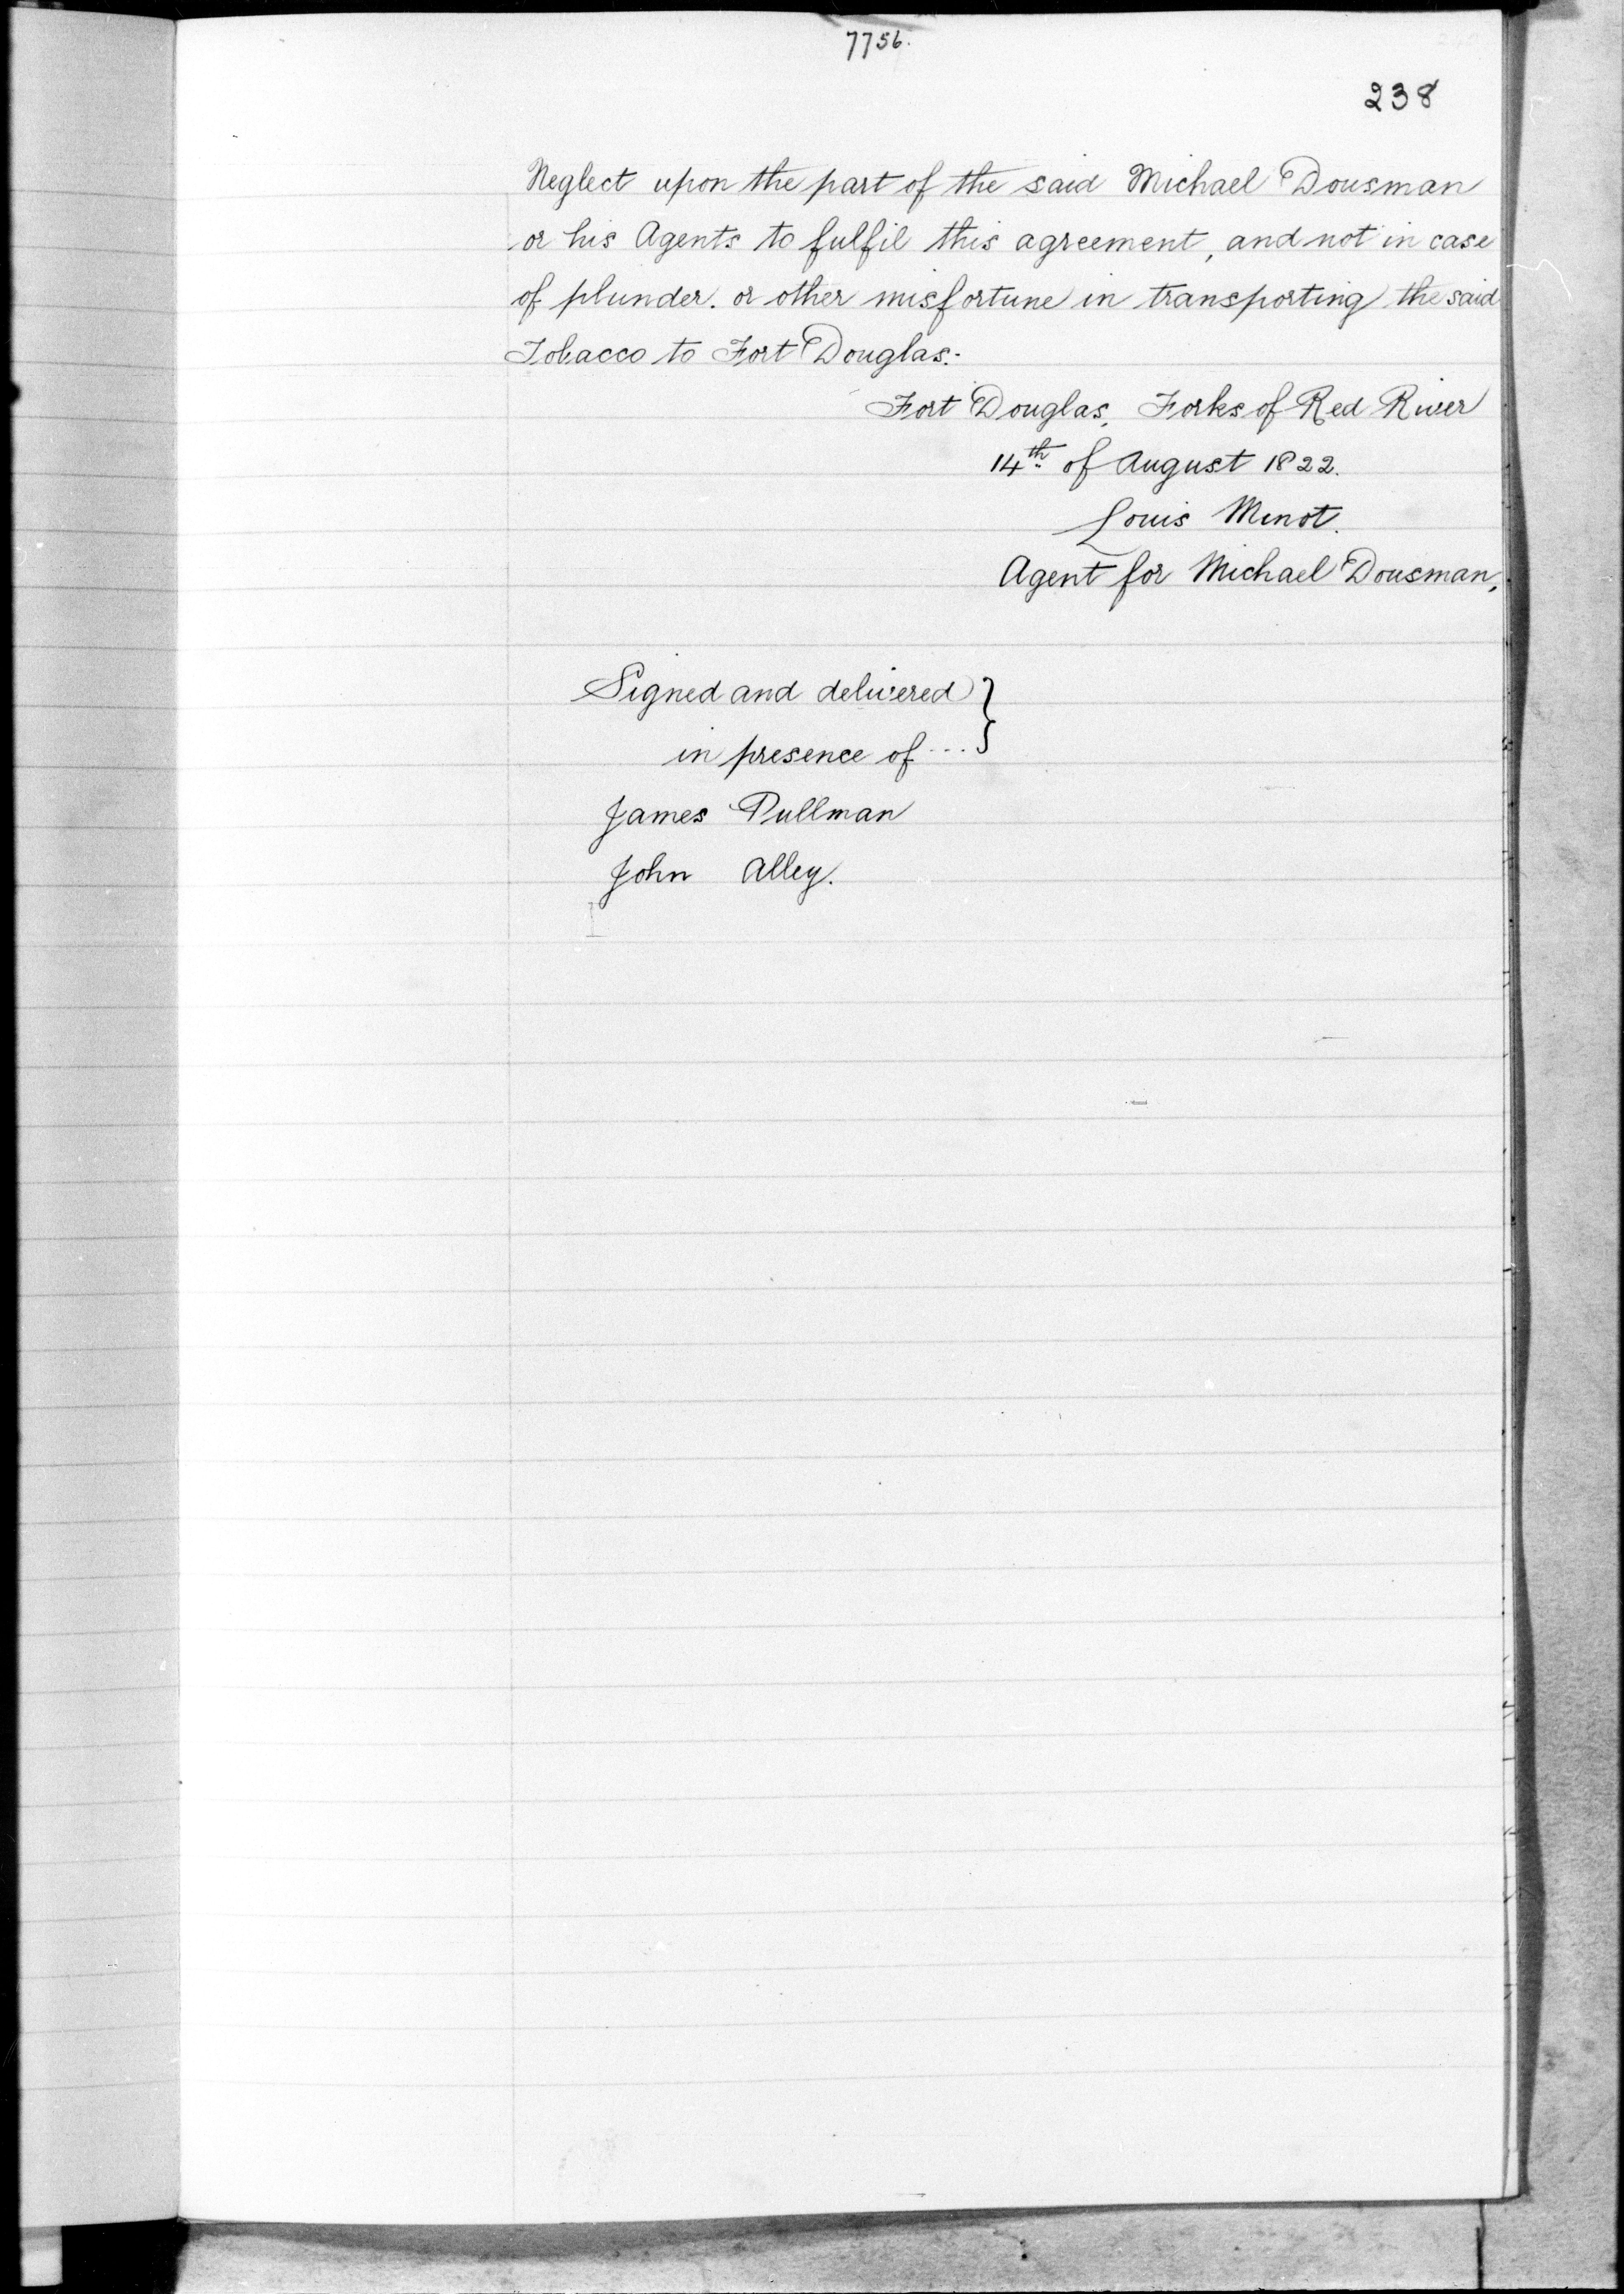 7756.
238
Neglect upon the part of the said Michael Dousman
or his Agents to fulfil this agreement, and not in case
of plunder. or other misfortune in transporting the said
Tobacco to Fort Douglas:-
Fort Douglas, Forks of Red River
14th of August 1822.
Louis Menot.
Agent for Michael Dousman,
Signed and delivered }
in presence of ... }
James Pullman
John Alley.